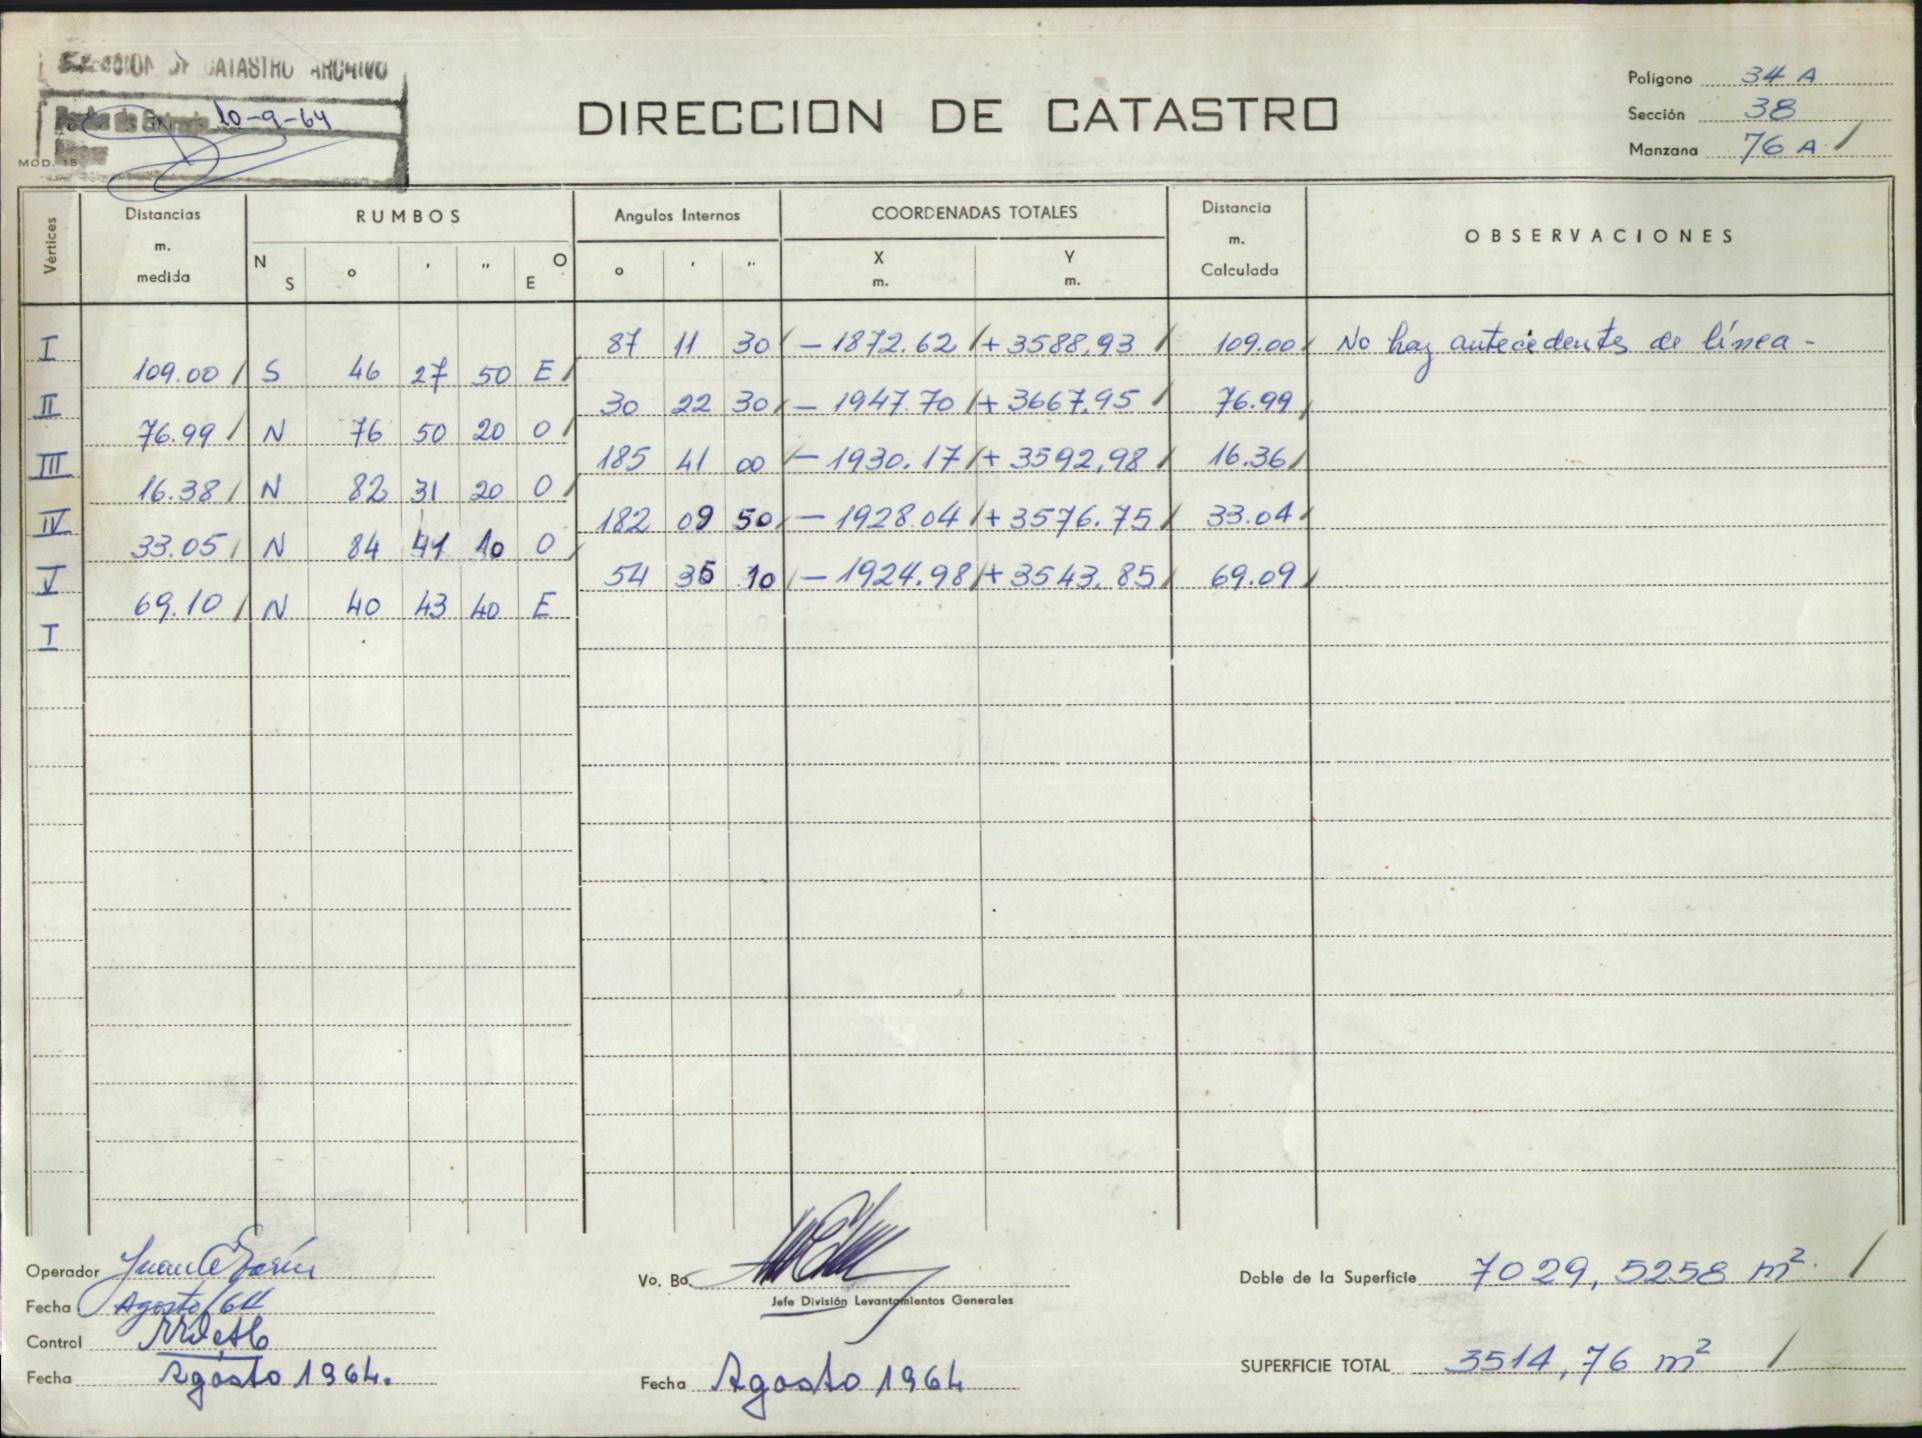 CATASTRO ARCHIVO
10-9-64
MOD. 15
DIRECCION DE CATASTRO
Polígono 34 A
Sección 38
Manzana 76 A /
Vértices
Distancias m. medida
RUMBOS
N S ° ' " O E
Angulos Internos
° ' "
COORDENADAS TOTALES
X m. Y m.
Distancia m. Calculada
OBSERVACIONES
I 87 11 30 / - 1872.62 / + 3588,93 / 109.00 / No hay antecedentes de línea -
109.00 / S 46 27 50 E /
II 30 22 30 / - 1947.70 / + 3667,95 / 76.99 /
76.99 / N 76 50 20 O /
III 185 41 00 / - 1930.17 / + 3592,98 / 16.36 /
16.38 / N 82 31 20 O /
IV 182 09 50 / - 1928.04 / + 3576.75 / 33.04 /
33.05 / N 84 41 10 O /
V 54 35 10 / - 1924.98 / + 3543.85 / 69.09 /
69.10 / N 40 43 40 E
I
Operador Juan
Fecha Agosto/64
Control
Fecha Agosto 1964.
Vo. Bo.
Jefe División Levantamientos Generales
Fecha Agosto 1964
Doble de la Superficie 7029,5258 m² /
SUPERFICIE TOTAL 3514,76 m² /